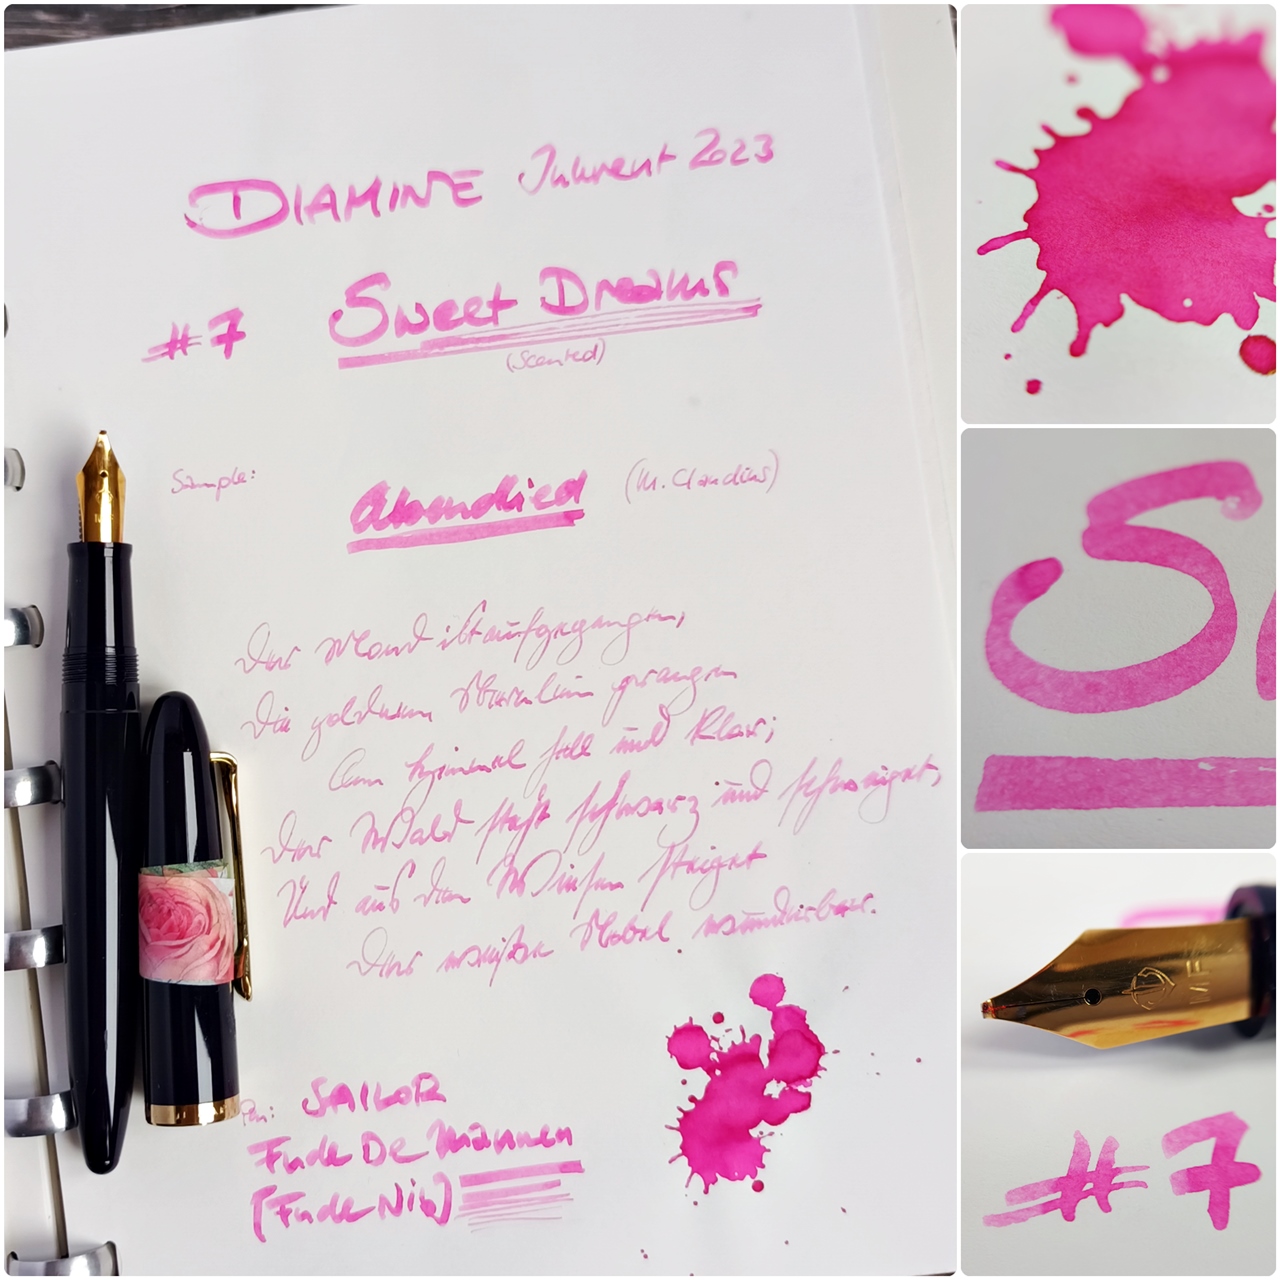 DIAMINE Inkvent 2023
#7 Sweet Dreams
(Scented)
Sample:
Abendlied (M. Claudius)
Der Mond ist aufgegangen,
Die goldnen Sternlein prangen
Am Himmel hell und klar;
Der Wald steht schwarz und schweiget,
Und aus den Wiesen steiget
Der weiße Nebel wunderbar.
Pen: SAILOR
Fude De Mannen
[Fude Nib]
S
MF
#7